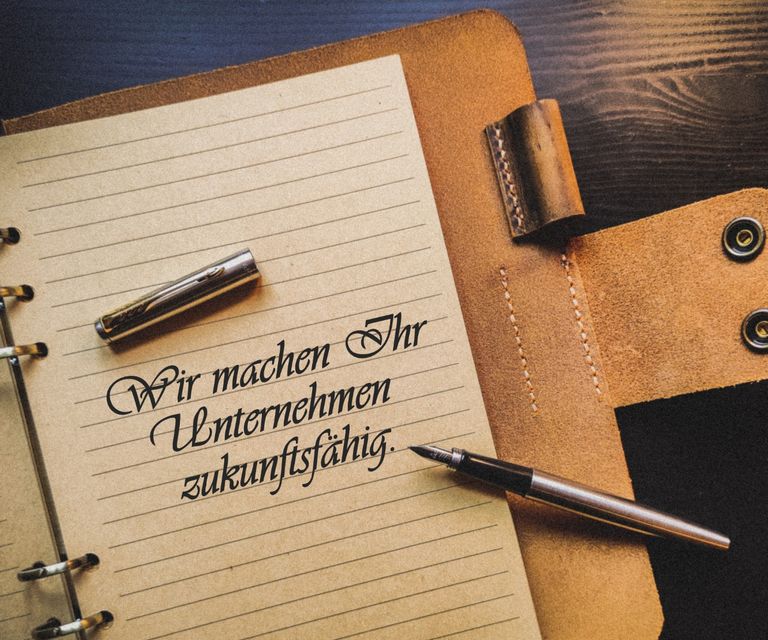 Wir machen Ihr
Unternehmen
zukunftsfähig.